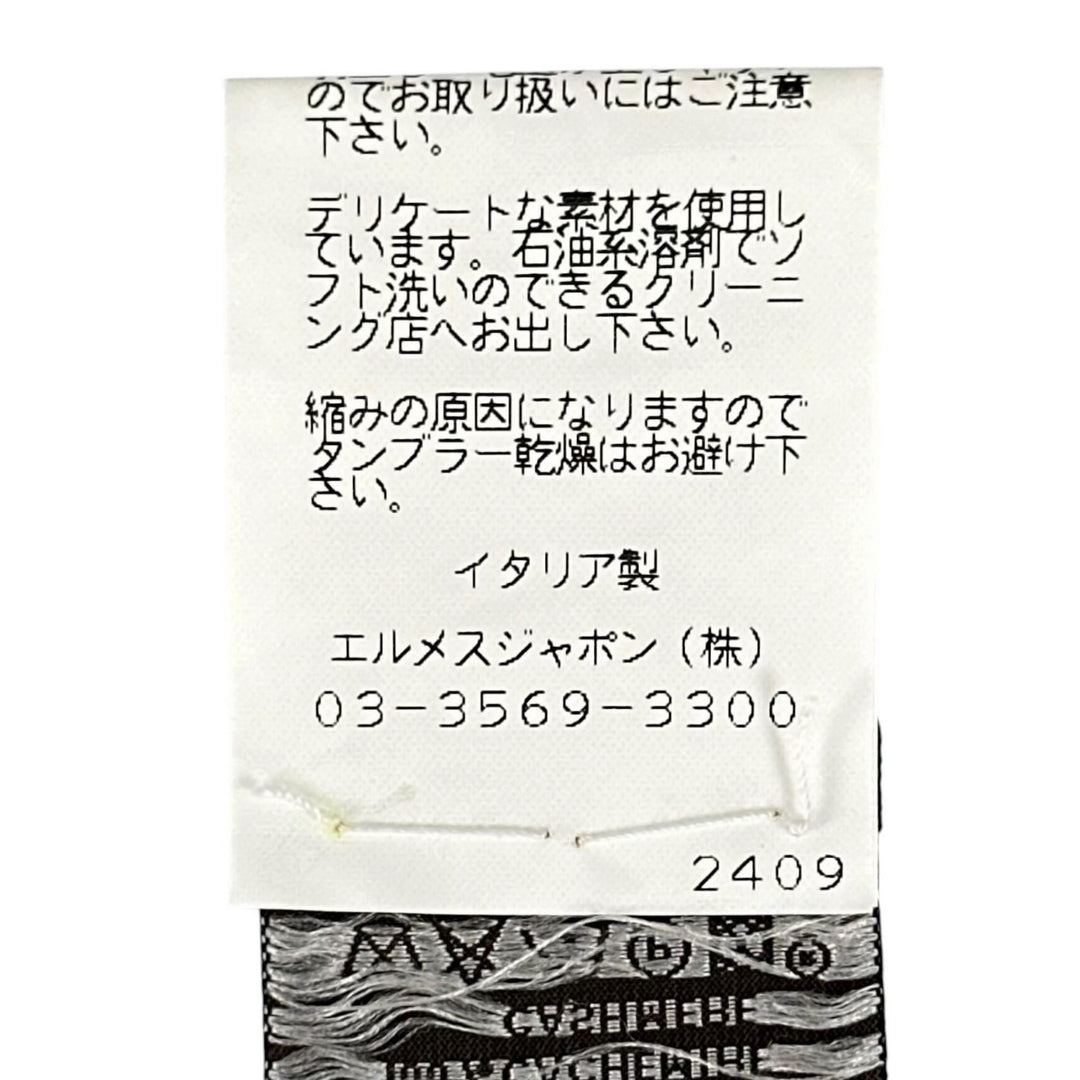 のでお取り扱いにはご注意
下さい。
デリケートな素材を使用し
ています。石油系溶剤でソ
フト洗いのできるクリーニ
ング店へお出し下さい。
縮みの原因になりますので
タンブラー乾燥はお避け下
さい。
イタリア製
エルメスジャポン（株）
03-3569-3300
2409